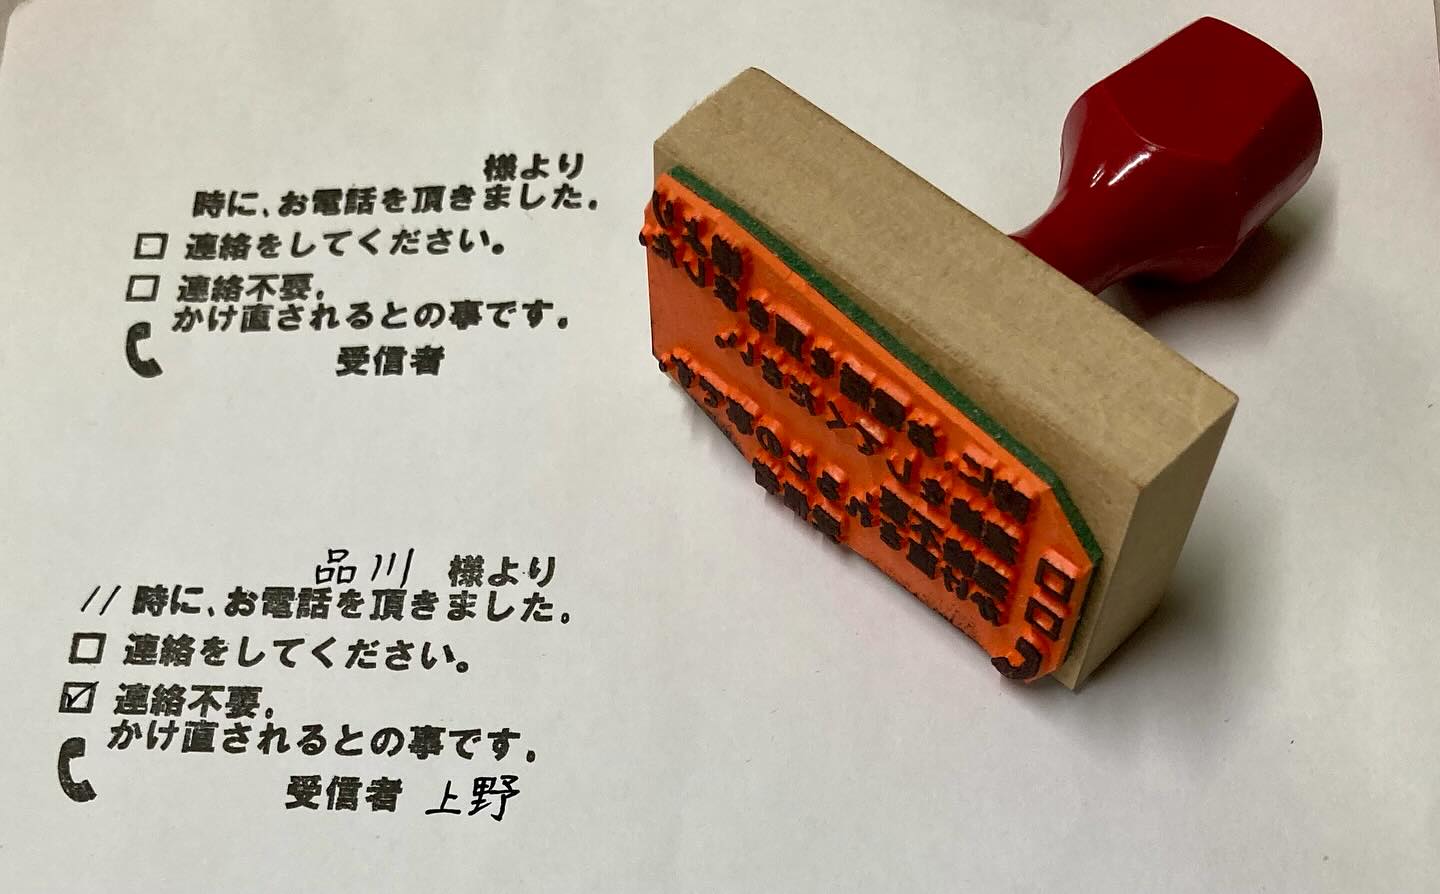 様より
時に、お電話を頂きました。
□ 連絡をしてください。
□ 連絡不要。
かけ直されるとの事です。
受信者
品川 様より
11 時に、お電話を頂きました。
□ 連絡をしてください。
☑ 連絡不要。
かけ直されるとの事です。
受信者 上野